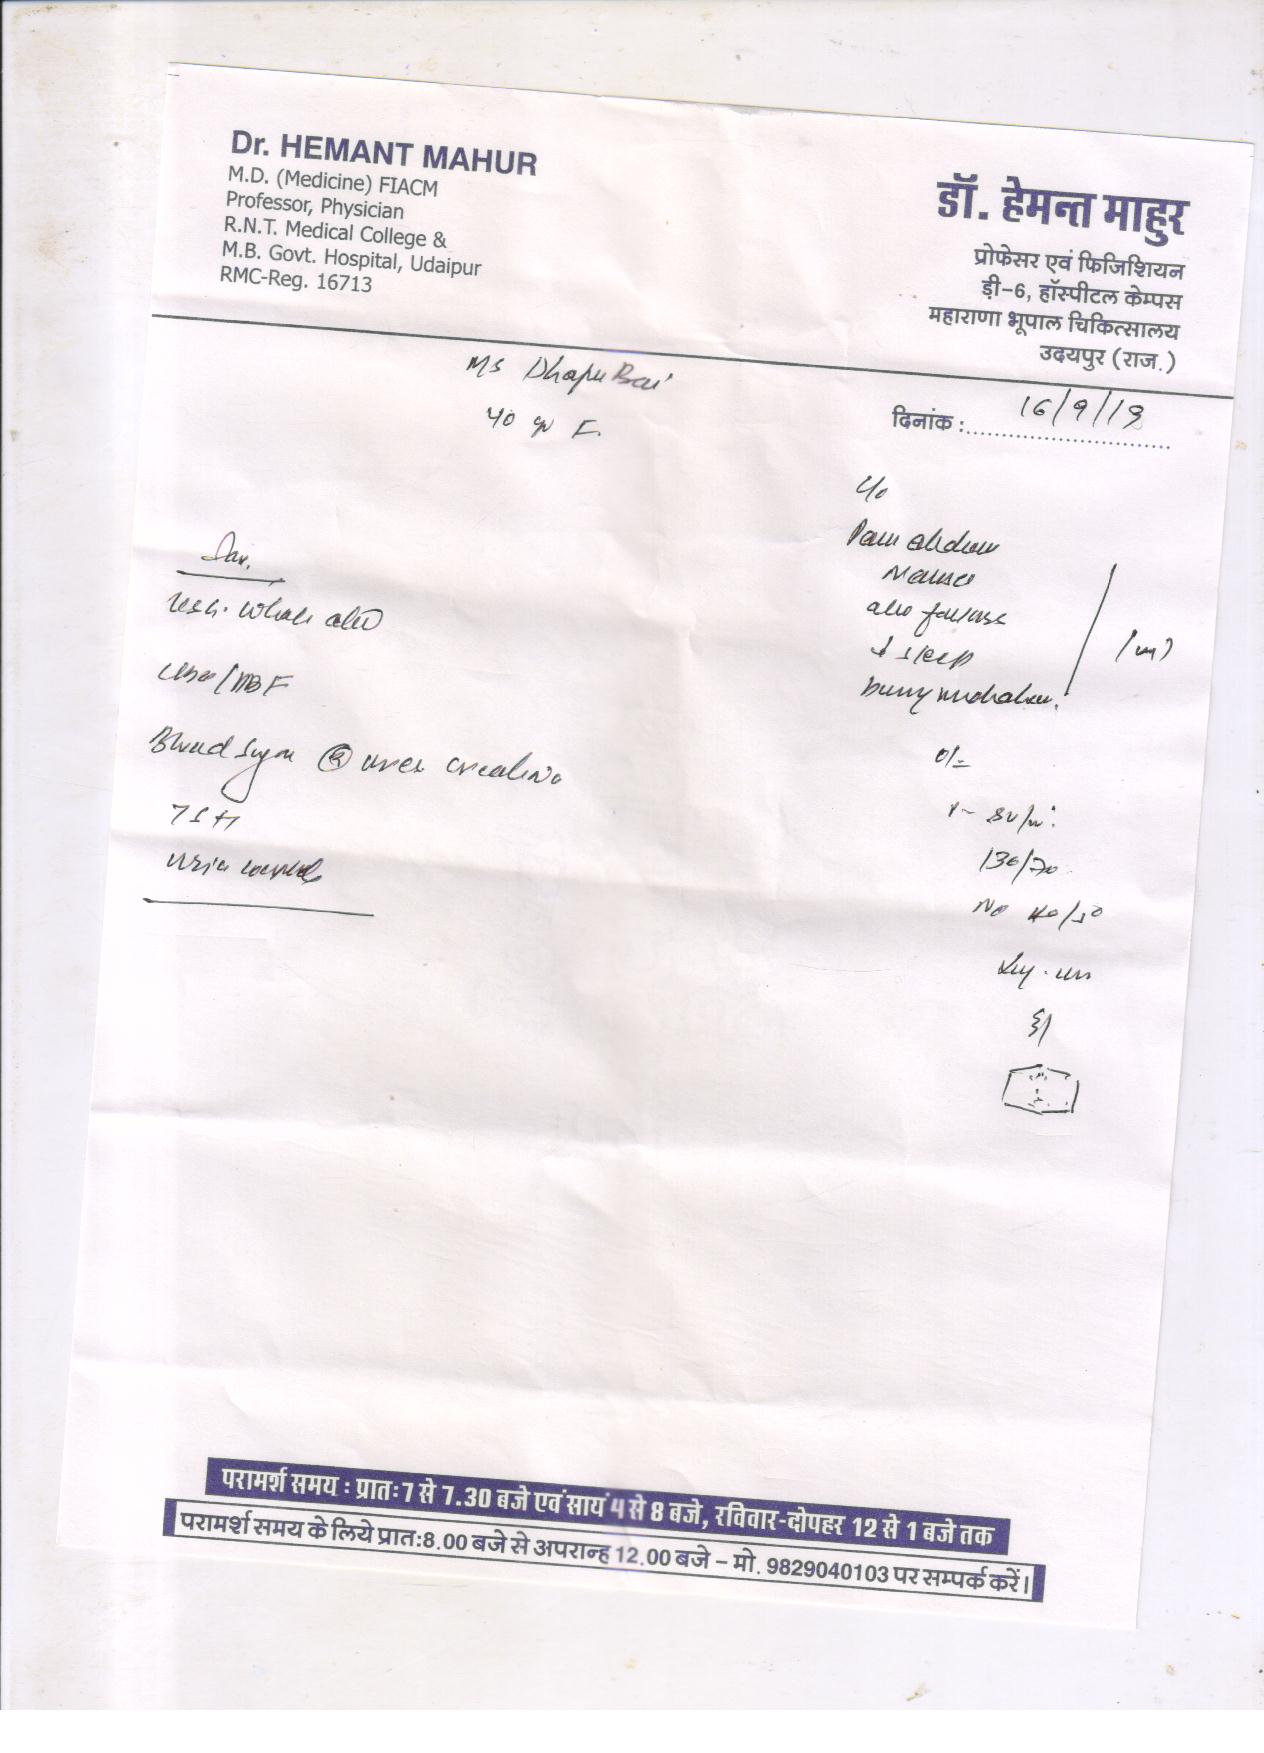 Dr. HEMANT MAHUR
M.D. (Medicine) FIACM
Professor, Physician
R.N.T. Medical College &
M.B. Govt. Hospital, Udaipur
RMC-Reg. 16713
डॉ. हेमन्त माहुर
प्रोफेसर एवं फिजिशियन
डी-6, हॉस्पीटल केम्पस
महाराणा भूपाल चिकित्सालय
उदयपुर (राज.)
Ms Dhapu Bai
40 yr F.
दिनांक : 16/9/19
c/o
Pain abdomen
Nausea
↓ sleep
burning micturition
O/E
130/70
USG. Whole abd
CBC/MBF
Blood Sugar urea creatinine
TSH
Urine complete
परामर्श समय : प्रातः 7 से 7.30 बजे एवं सायं 4 से 8 बजे, रविवार-दोपहर 12 से 1 बजे तक
परामर्श समय के लिये प्रात:8.00 बजे से अपरान्ह 12.00 बजे – मो. 9829040103 पर सम्पर्क करें।